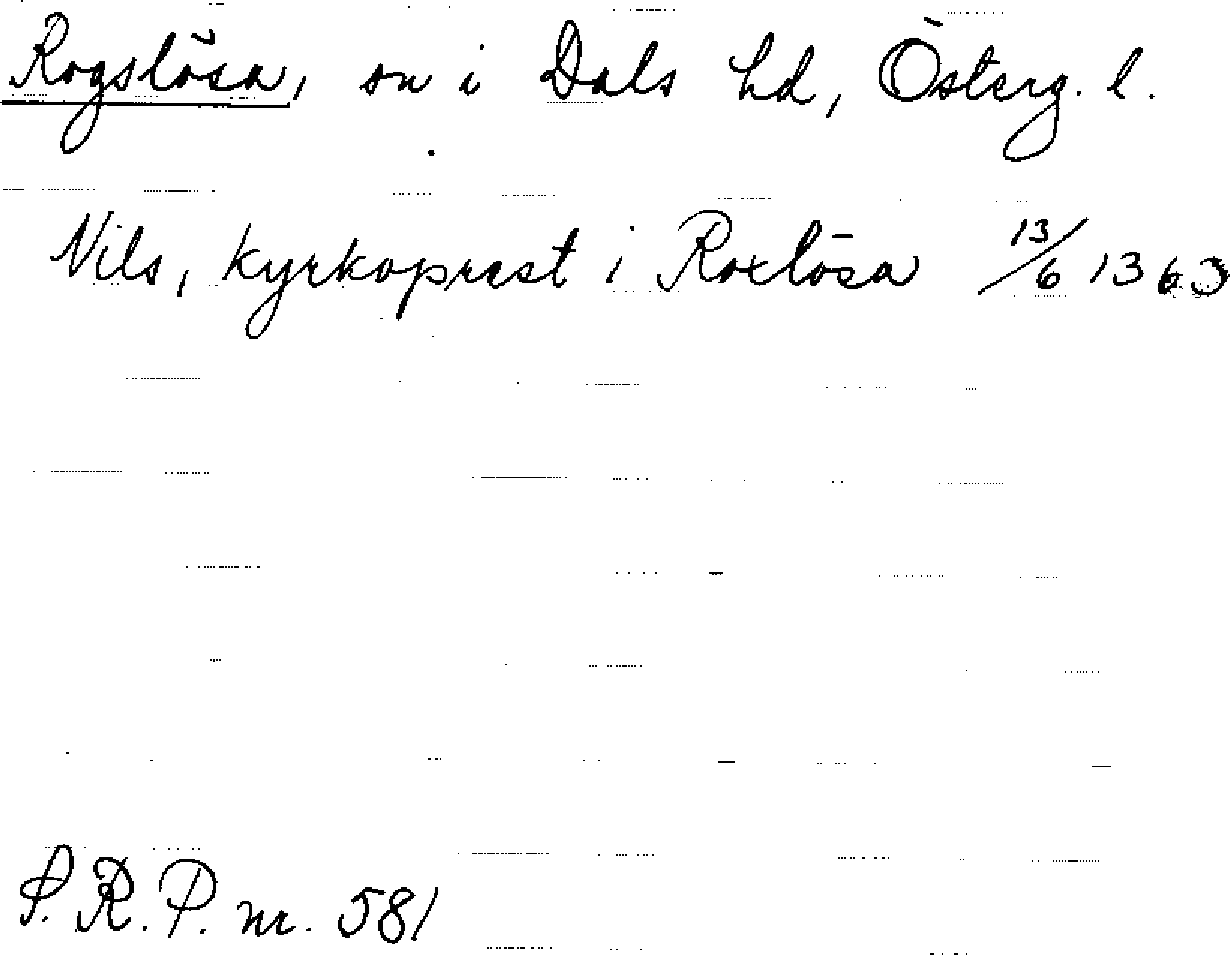 Rogslösa, sn i Dals hd, Österg. l.
Nils, kyrkoprest i Roxlösa 13/6 1363
S.R.P. nr. 581